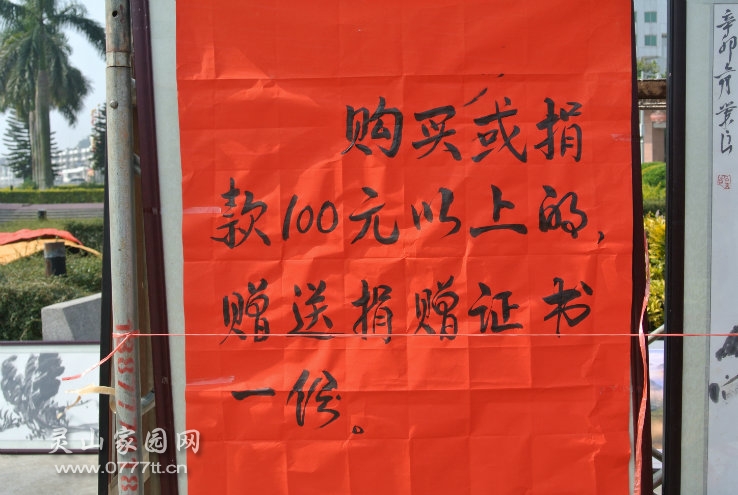 购买或捐
款100元以上的,
赠送捐赠证书
一份。
辛卯
灵山家园网
www.0777tt.cn